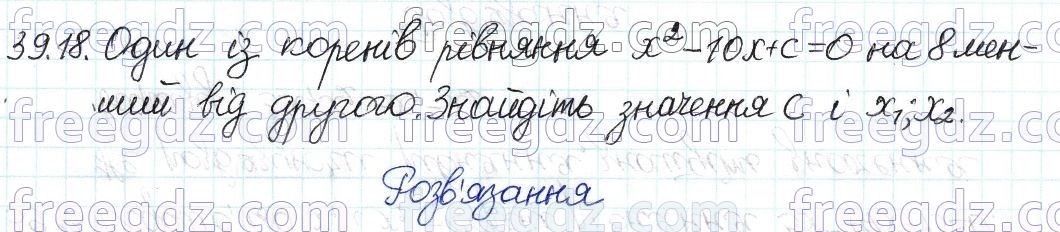 39.18. Один із коренів рівняння x²-10x+c=0 на 8 мен-
ший від другого. Знайдіть значення c і x₁; x₂.
Розв'язання
freegdz.com freegdz.com freegdz.com
freegdz.com freegdz.com freegdz.com
freegdz.com freegdz.com freegdz.com
freegdz.com freegdz.com freegdz.com